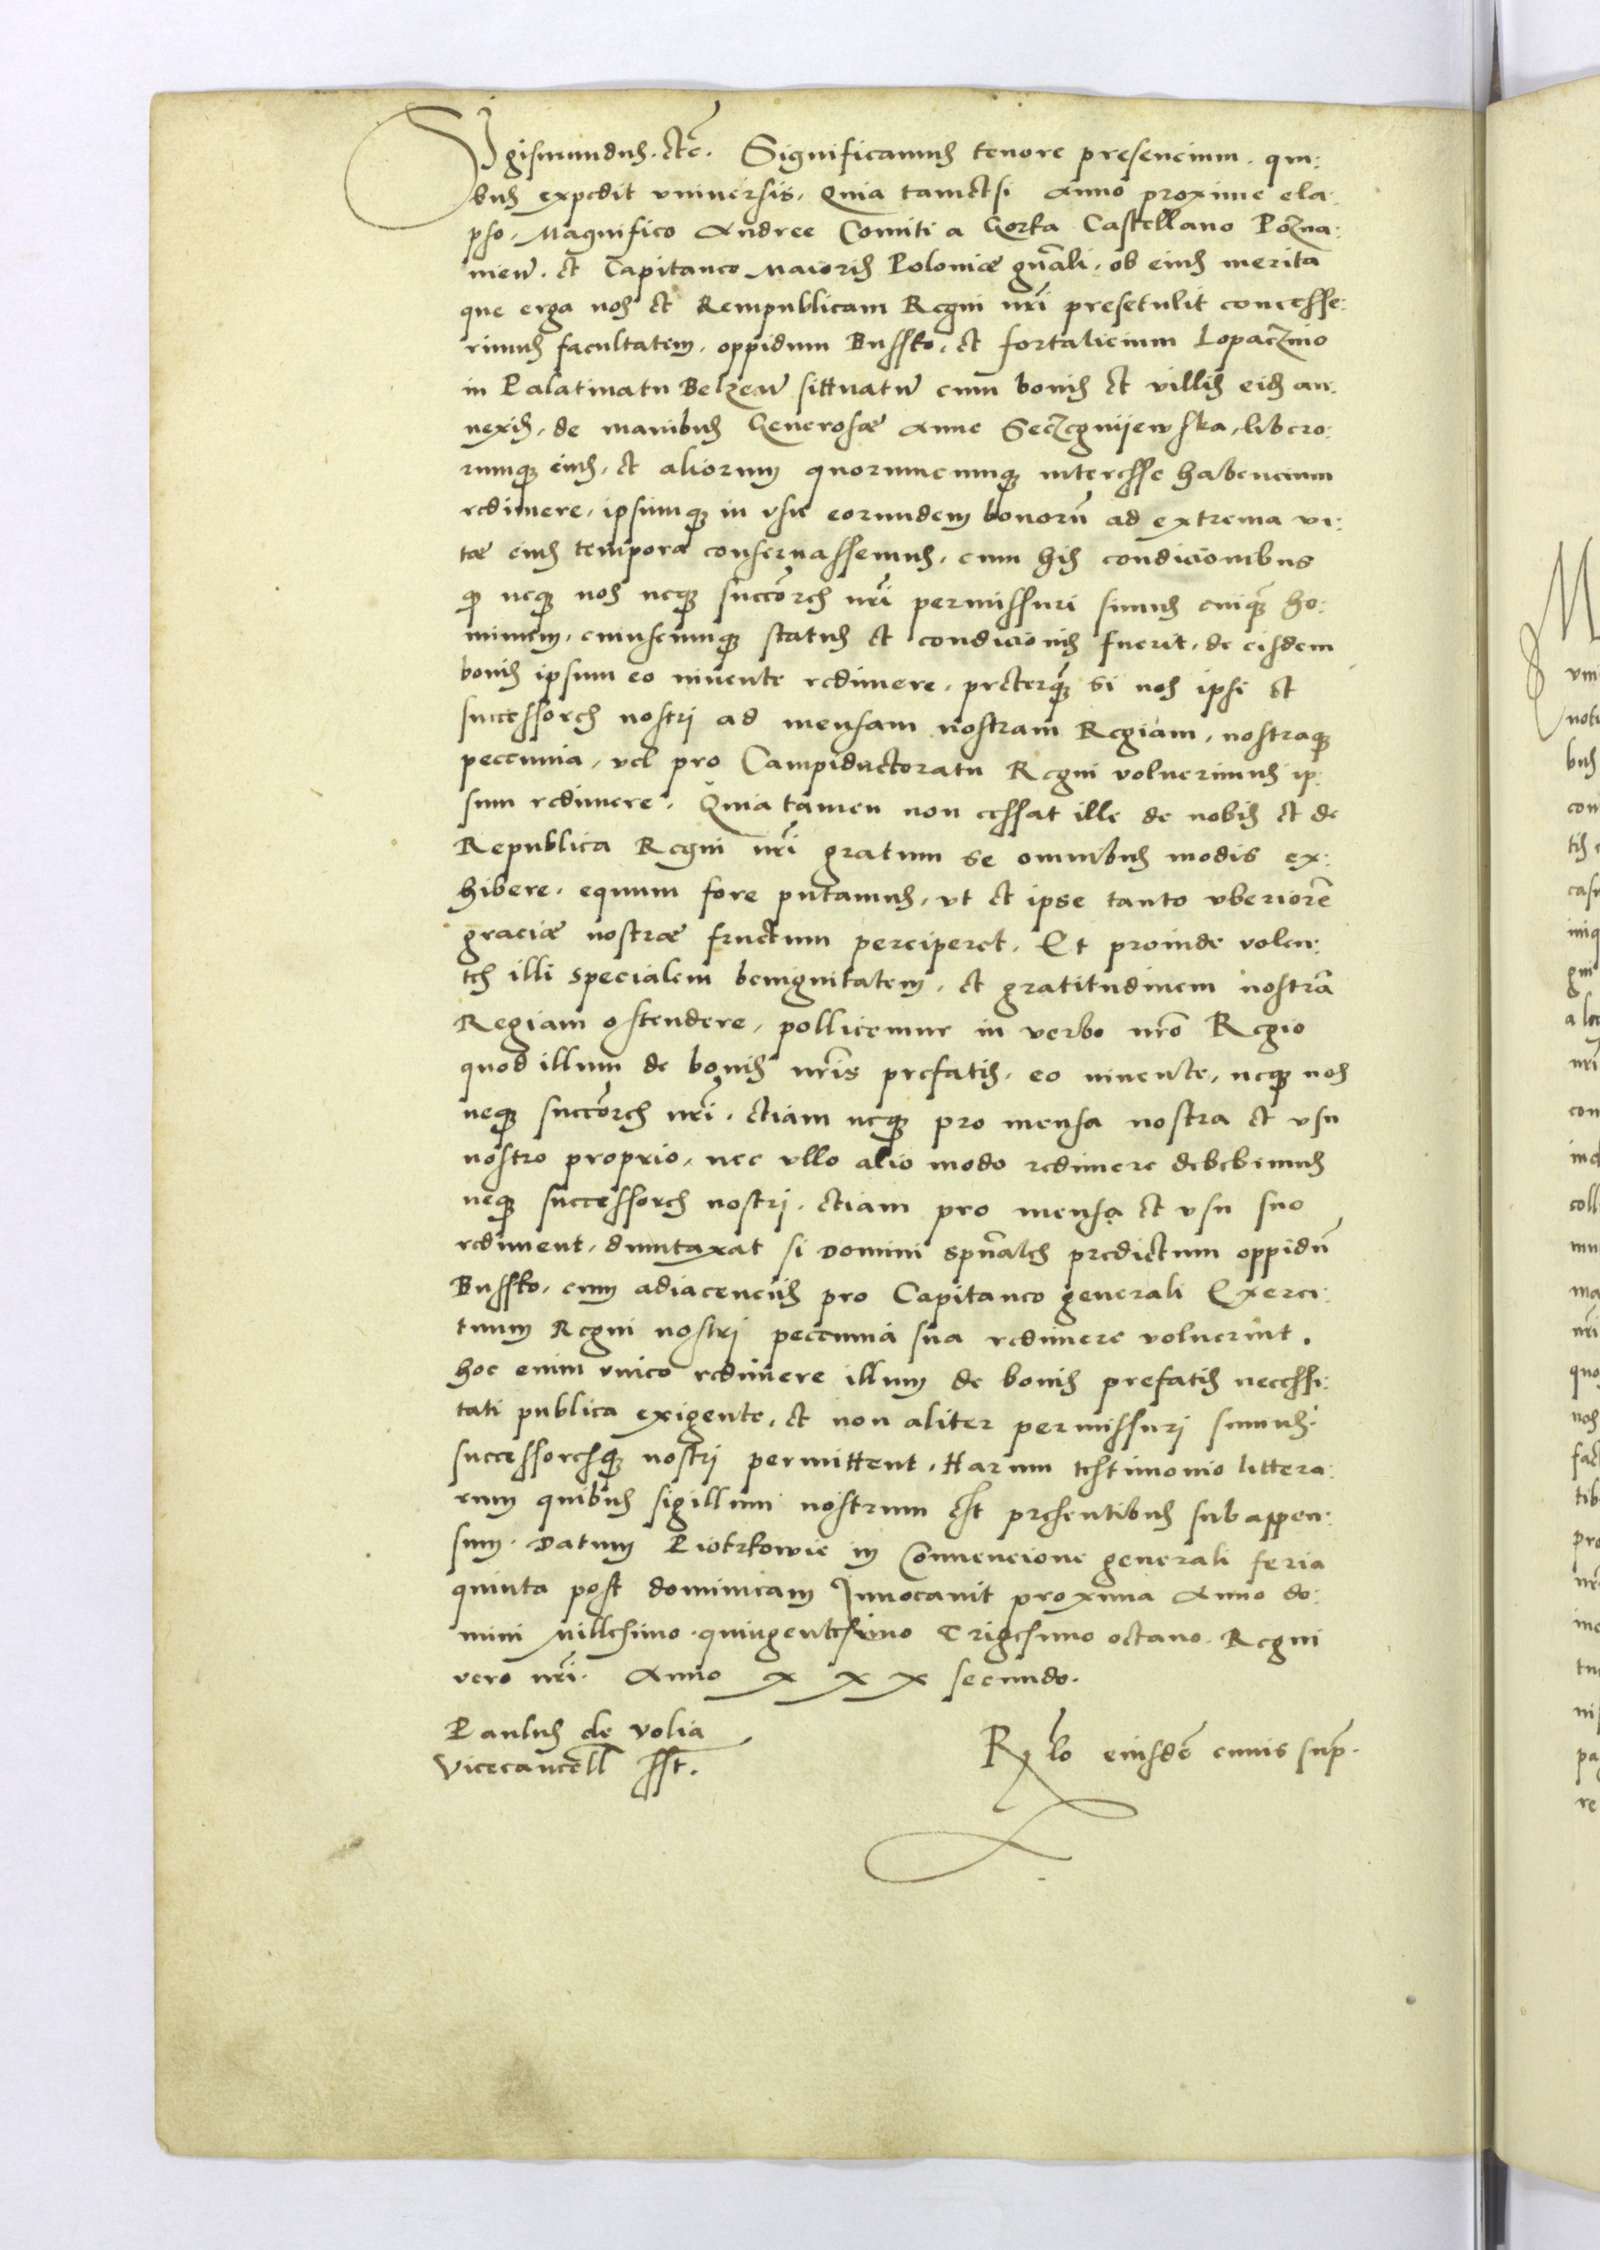 Sigismundus. etc̄. Significamus tenore presencium. qui:
bus expedit vniuersis. Quia tametsi Anno proxime ela:
pso. Magnifico Andree Comiti a Gorka Castellano Pozna:
nien̄. et Capitaneo Maioris Poloniæ gn̄ali. ob eius merita
que erga nos et Rempublicam Regni nr̄i presetulit concesse:
rimus facultatem. oppidum Bussko. et fortalicium Lopaczino
in Palatinatu Belzen̄ sittuatū cum bonis et villis eis an:
nexis. de manibus Generosæ Anne libero:
rumq̨ eius. et aliorum quorumcumq̨ interesse habencium
redimere. ipsumq̨ in vsu eorundem bonorū ad extrema vi:
tæ eius tempora conseruassemus. cum his condicionibus
q̨ neq̨ nos neq̨ succōres nr̄i permissuri simus cuiq̨̄ ho:
minem. cuiuscumq̨ status et condicionis fuerit. de eisdem
bonis ipsum eo viuente redimere. preterq̨̄ si nos ipsi et
successores nostri ad mensam nostram Regiam. nostraq̨
peccunia. vel pro Campiductoratu Regni voluerimus ip:
sum redimere. Quia tamen non cessat ille de nobis et de
Republica Regni nr̄i gratum se omnibus modis ex:
hibere. equum fore putamus. vt et ipse tanto vberiorē
graciæ nostræ fructum perciperet. Et proinde volen:
tes illi specialem benignitatem. et gratitudinem nostrā
Regiam ostendere. pollicemur in verbo nr̄o Regio
quod illum de bonis nr̄is prefatis. eo viuente. neq̨ nos
neq̨ succōres nr̄i. etiam neq̨ pro mensa nostra et vsu
nostro proprio. nec vllo alio modo redimere debebimus
neq̨ successores nostri. etiam pro mensa et vsu suo
rediment. dumtaxat si Domini spūales predictum oppidū
Bussko. cum adiacencijs pro Capitaneo generali Exerci:
tuum Regni nostri peccunia sua redimere voluerint.
hoc enim vnico redimere illum de bonis prefatis necessi:
tati publica exigente. et non aliter permissuri sumus.
successoresq̨ nostri permittent. Harum testimonio littera:
rum quibus sigillum nostrum est presentibus subappen:
sum. Datum Piotrkowie in Conuencione generali feria
quinta post dominicam Inuocauit proxima Anno do:
mini Millesimo quingentesimo Trigesimo octauo. Regni
vero nr̄i. Anno x x x secundo.
Paulus de Volia
Vicecancell sst.
R̨lo eiusdē cuius sup̄.